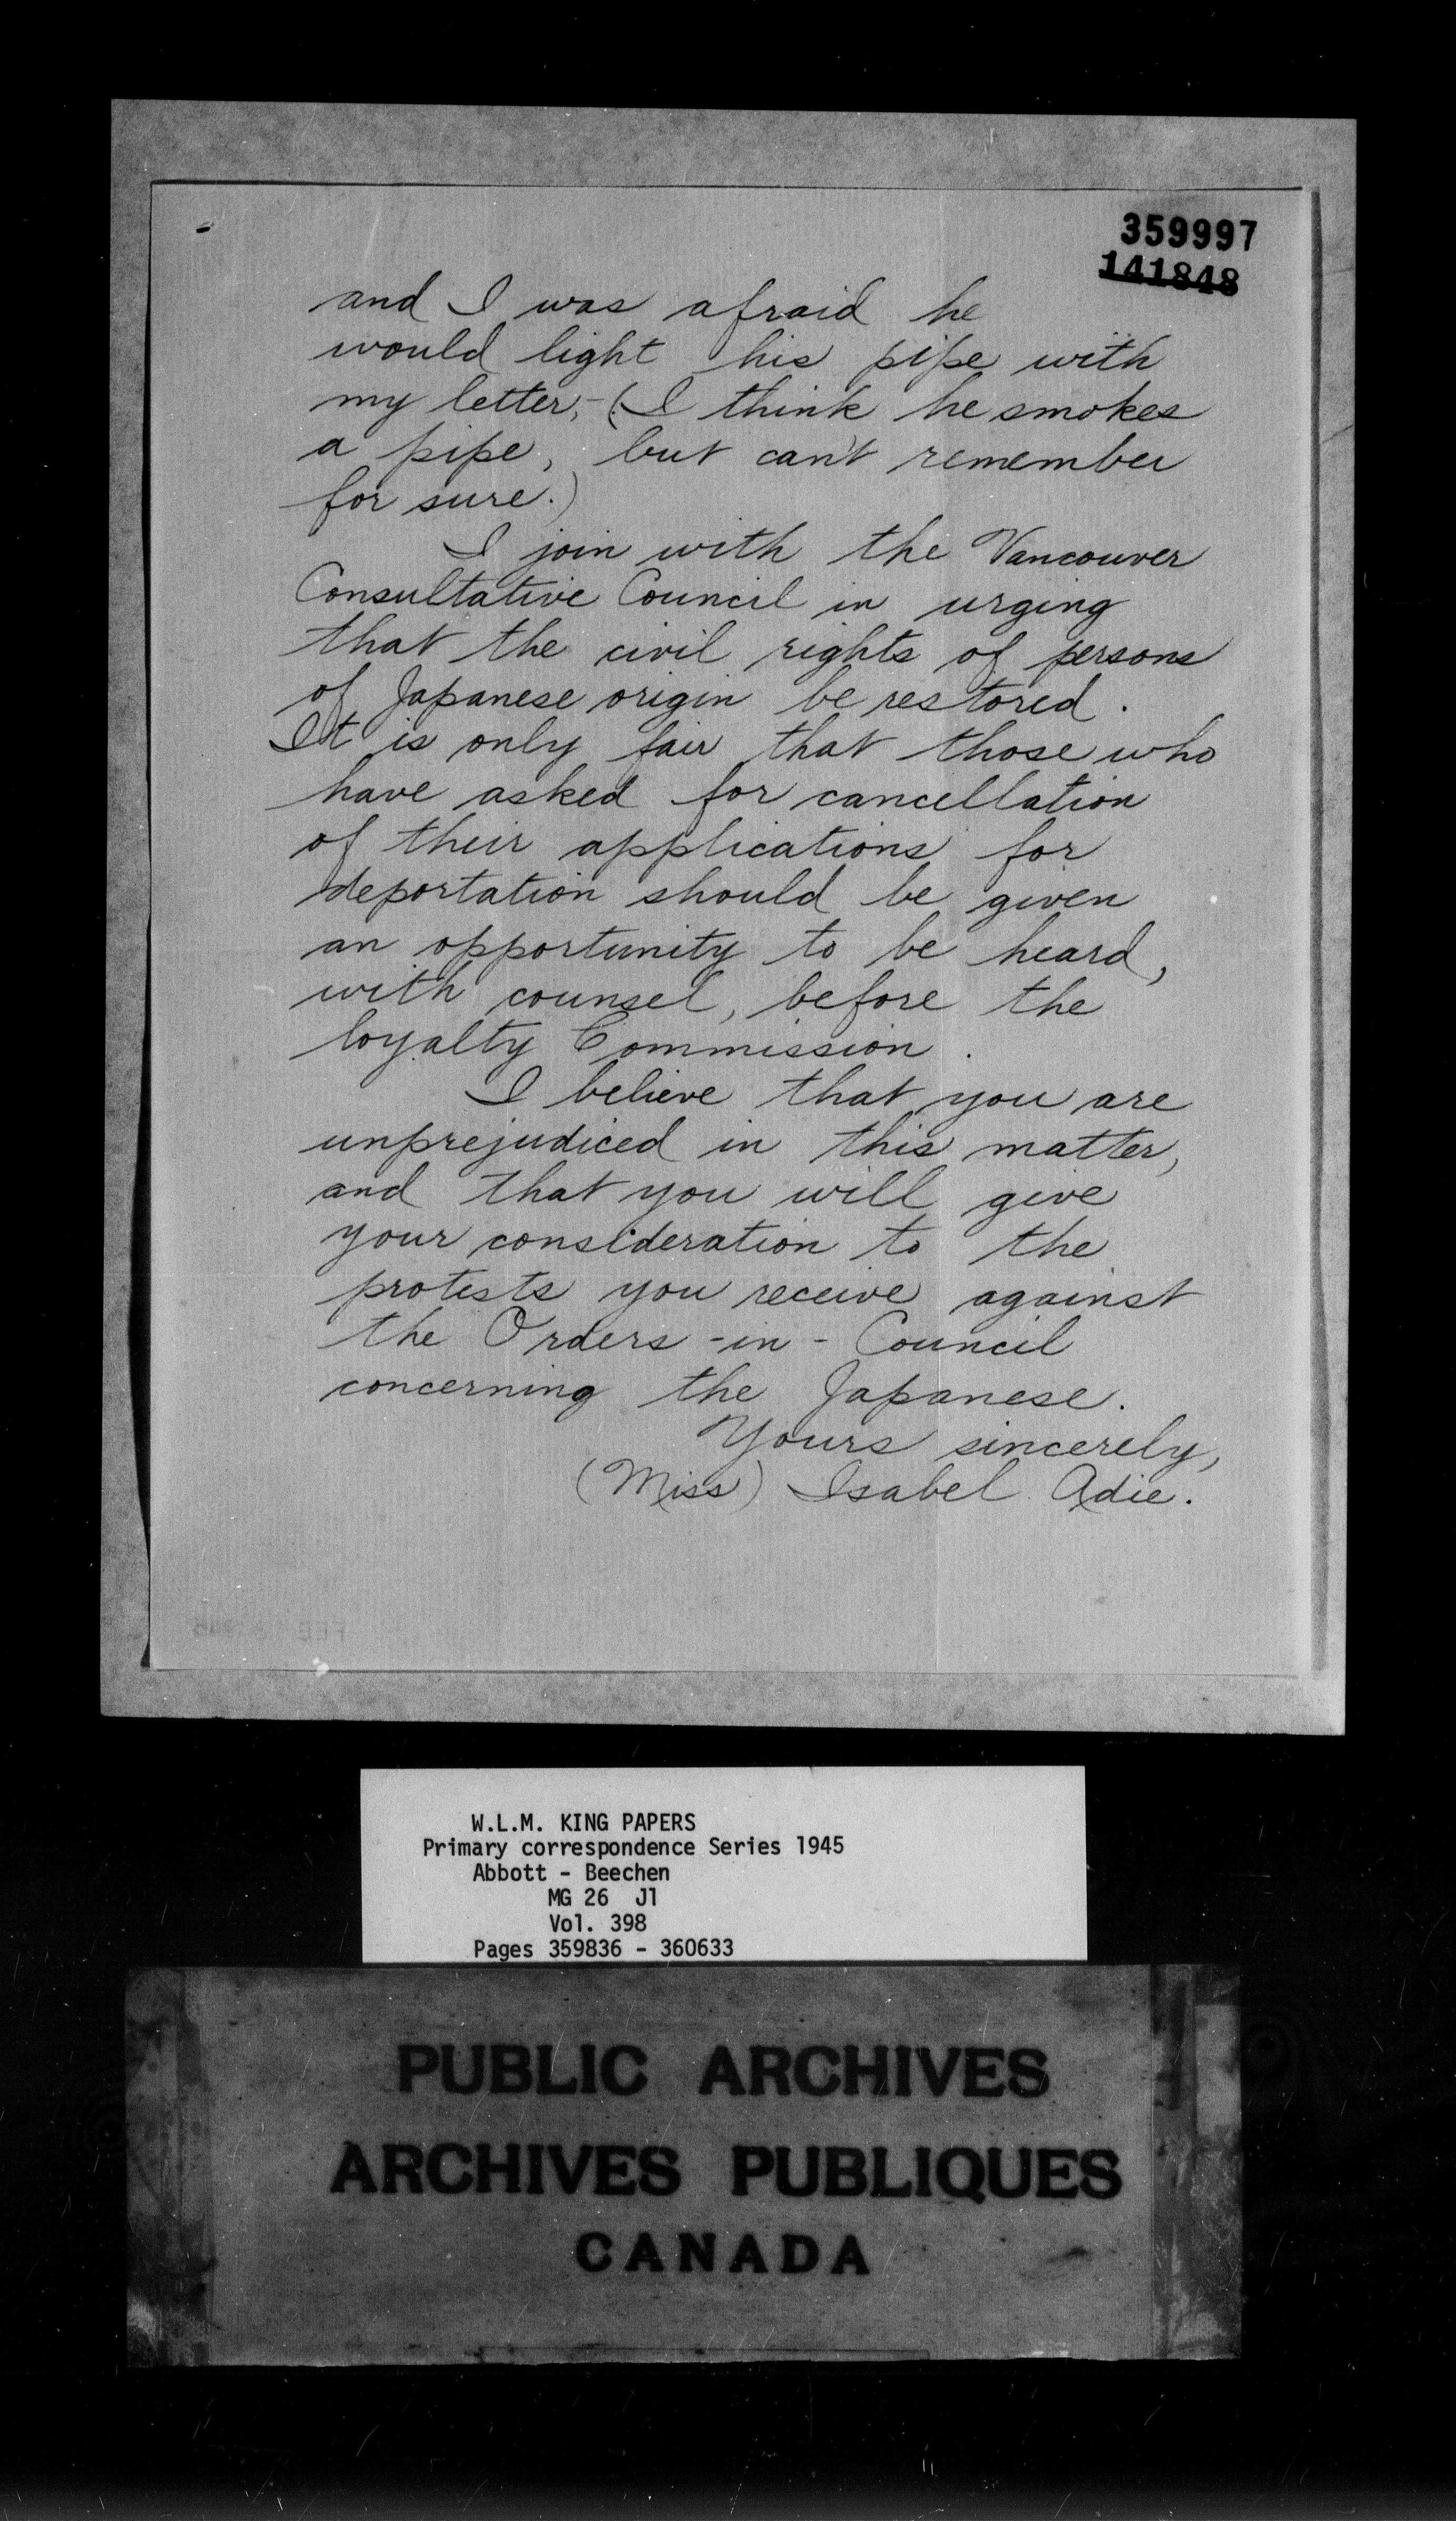 359997
141848
and I was afraid he
would light his pipe with
my letter,-(I think he smokes
a pipe, but can't remember
for sure.)
I join with the Vancouver
Consultative Council in urging
that the civil rights of persons
of Japanese origin be restored.
It is only fair that those who
have asked for cancellation
of their applications for
deportation should be given
an opportunity to be heard,
with counsel, before the
loyalty Commission.
I believe that you are
unprejudiced in this matter,
and that you will give
your consideration to the
protests you receive against
the Orders-in-Council
concerning the Japanese.
Yours sincerely,
(Miss) Isabel Adie.
W.L.M. KING PAPERS
Primary correspondence Series 1945
Abbott - Beechen
MG 26 J1
Vol. 398
Pages 359836 - 360633
PUBLIC ARCHIVES
ARCHIVES PUBLIQUES
CANADA